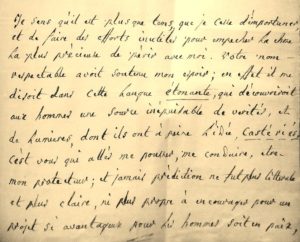 Je sens qu'il est plus que tems que je cesse d'importuner,
et de faire des efforts inutiles pour emporter la chose
la plus précieuse de paris avec moi. Votre nom
respectable avoit soutenu mon espoir; en effet il me
disoit dans cette langue étonante, qui découvriroit
aux hommes une source inépuisable de verités, et
de lumieres dont ils ont à peine l'idée,
C'est vous qui allés me pousser, me conduire, etre
mon protecteur; et jamais prédiction ne fut plus litterale
et plus claire, ni plus propre à encourager pour un
projet si avantageux pour les hommes soit en paix,